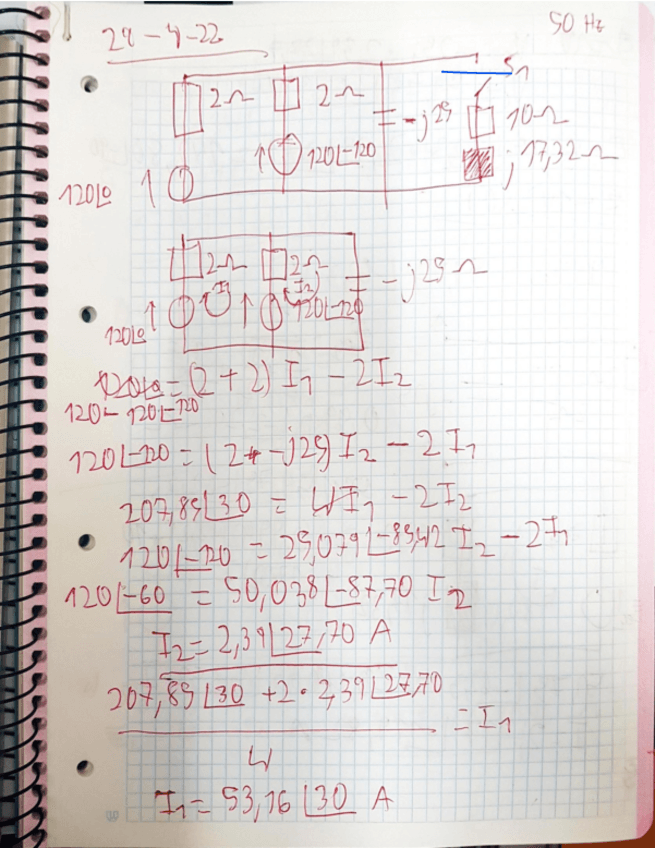 50 Hz
28-4-22
S1
2Ω 2Ω -j25 10Ω
120∠-120 j17,32Ω
120∠0
2Ω 2Ω -j25Ω
I1 I2
120∠-120
120∠0
120∠0 = (2+2) I1 - 2I2
120 - 120∠-120
120∠-120 = (2+-j25) I2 - 2I1
207,85∠30 = 4I1 - 2I2
120∠-120 = 25,079∠-85,42 I2 - 2I1
120∠-60 = 50,038∠-87,70 I2
I2 = 2,39∠27,70 A
207,85∠30 + 2·2,39∠27,70
= I1
4
I1 = 53,16∠30 A